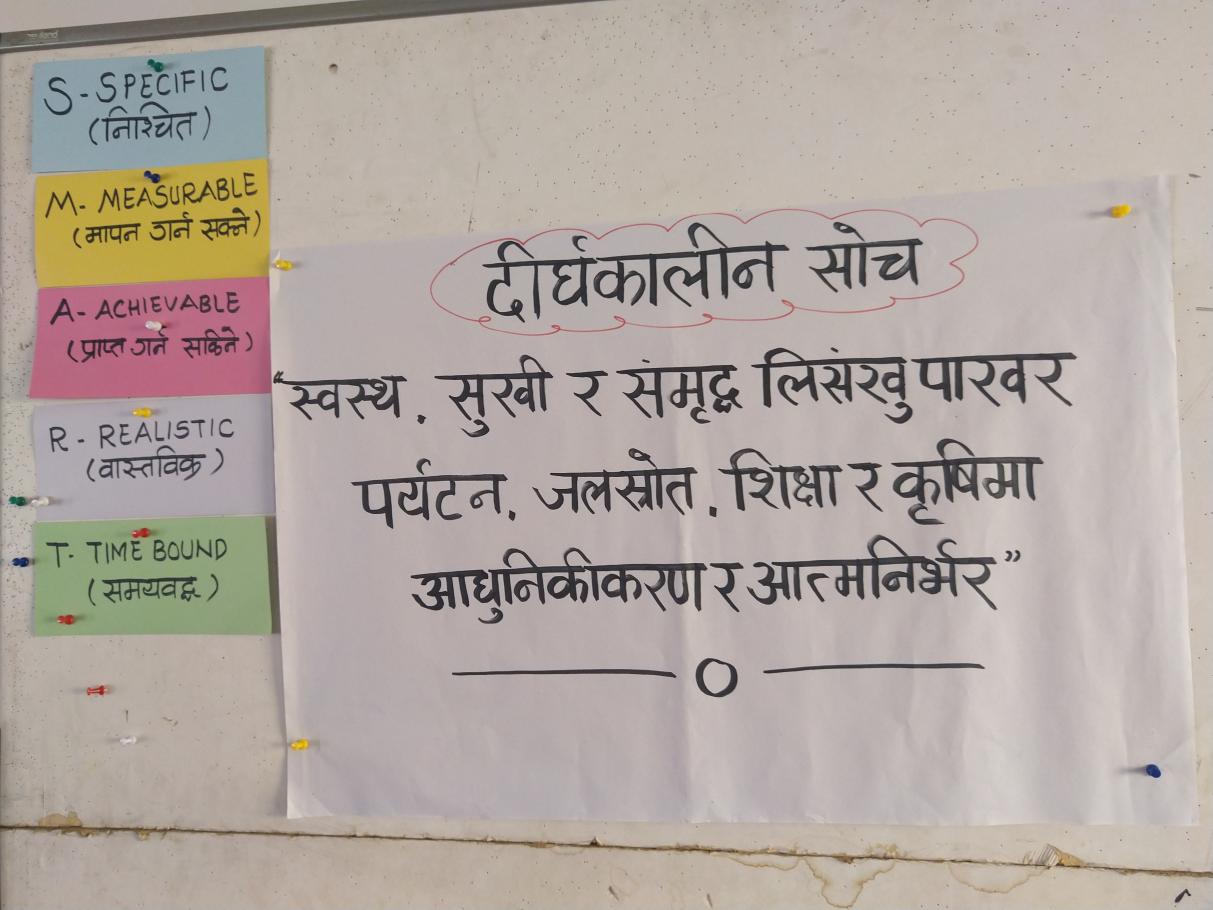 S - SPECIFIC
(निश्चित)
M - MEASURABLE
(मापन गर्न सक्ने)
A - ACHIEVABLE
(प्राप्त गर्न सकिने)
R - REALISTIC
(वास्तविक)
T - TIME BOUND
(समयवद्ध)
दीर्घकालीन सोच
“स्वस्थ, सुखी र संमृद्ध लिसंखु पाखर
पर्यटन, जलस्रोत, शिक्षा र कृषिमा
आधुनिकीकरण र आत्मनिर्भर”